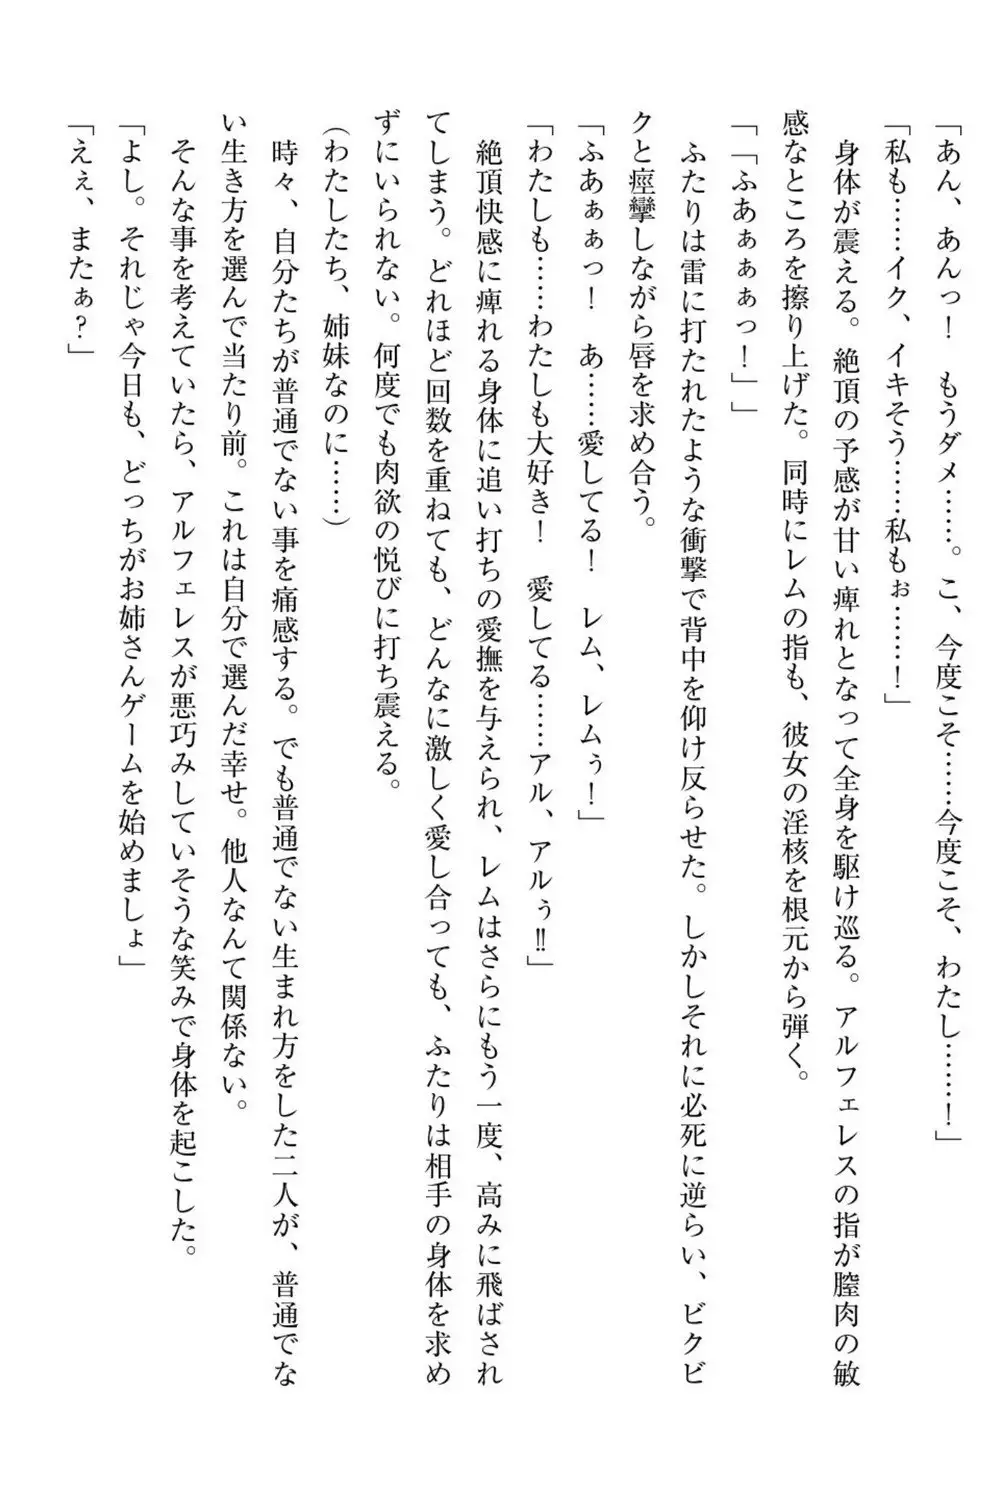 「あん、あんっ！　もうダメ……。こ、今度こそ……今度こそ、わたし……！」
「私も……イク、イキそう……私もぉ……！」
　身体が震える。絶頂の予感が甘い痺れとなって全身を駆け巡る。アルフェレスの指が膣肉の敏
感なところを擦り上げた。同時にレムの指も、彼女の淫核を根元から弾く。
「「ふあぁぁぁっ！」」
　ふたりは雷に打たれたような衝撃で背中を仰け反らせた。しかしそれに必死に逆らい、ビクビ
クと痙攣しながら唇を求め合う。
「ふあぁぁっ！　あ……愛してる！　レム、レムぅ！」
「わたしも……わたしも大好き！　愛してる……アル、アルぅ‼」
　絶頂快感に痺れる身体に追い打ちの愛撫を与えられ、レムはさらにもう一度、高みに飛ばされ
てしまう。どれほど回数を重ねても、どんなに激しく愛し合っても、ふたりは相手の身体を求め
ずにいられない。何度でも肉欲の悦びに打ち震える。
（わたしたち、姉妹なのに……）
　時々、自分たちが普通でない事を痛感する。でも普通でない生まれ方をした二人が、普通でな
い生き方を選んで当たり前。これは自分で選んだ幸せ。他人なんて関係ない。
　そんな事を考えていたら、アルフェレスが悪巧みしていそうな笑みで身体を起こした。
「よし。それじゃ今日も、どっちがお姉さんゲームを始めましょ」
「えぇ、またぁ？」